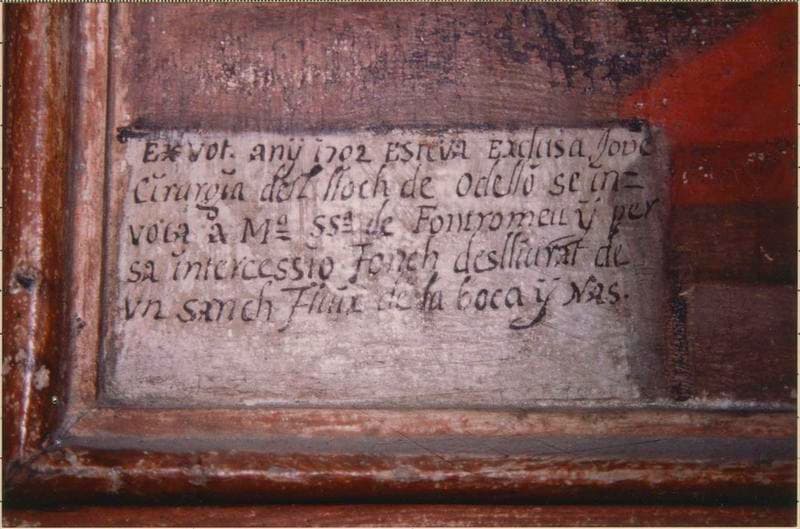 Ex vot. anÿ 1702 Esteva Exclusa Jove
Cirurgia desl lloch de Odelló se in=
vocá a Mª SSª de Fontromeu ÿ per
sa intercessio fonch deslliurat de
vn sanch flux de la boca ÿ Nas.